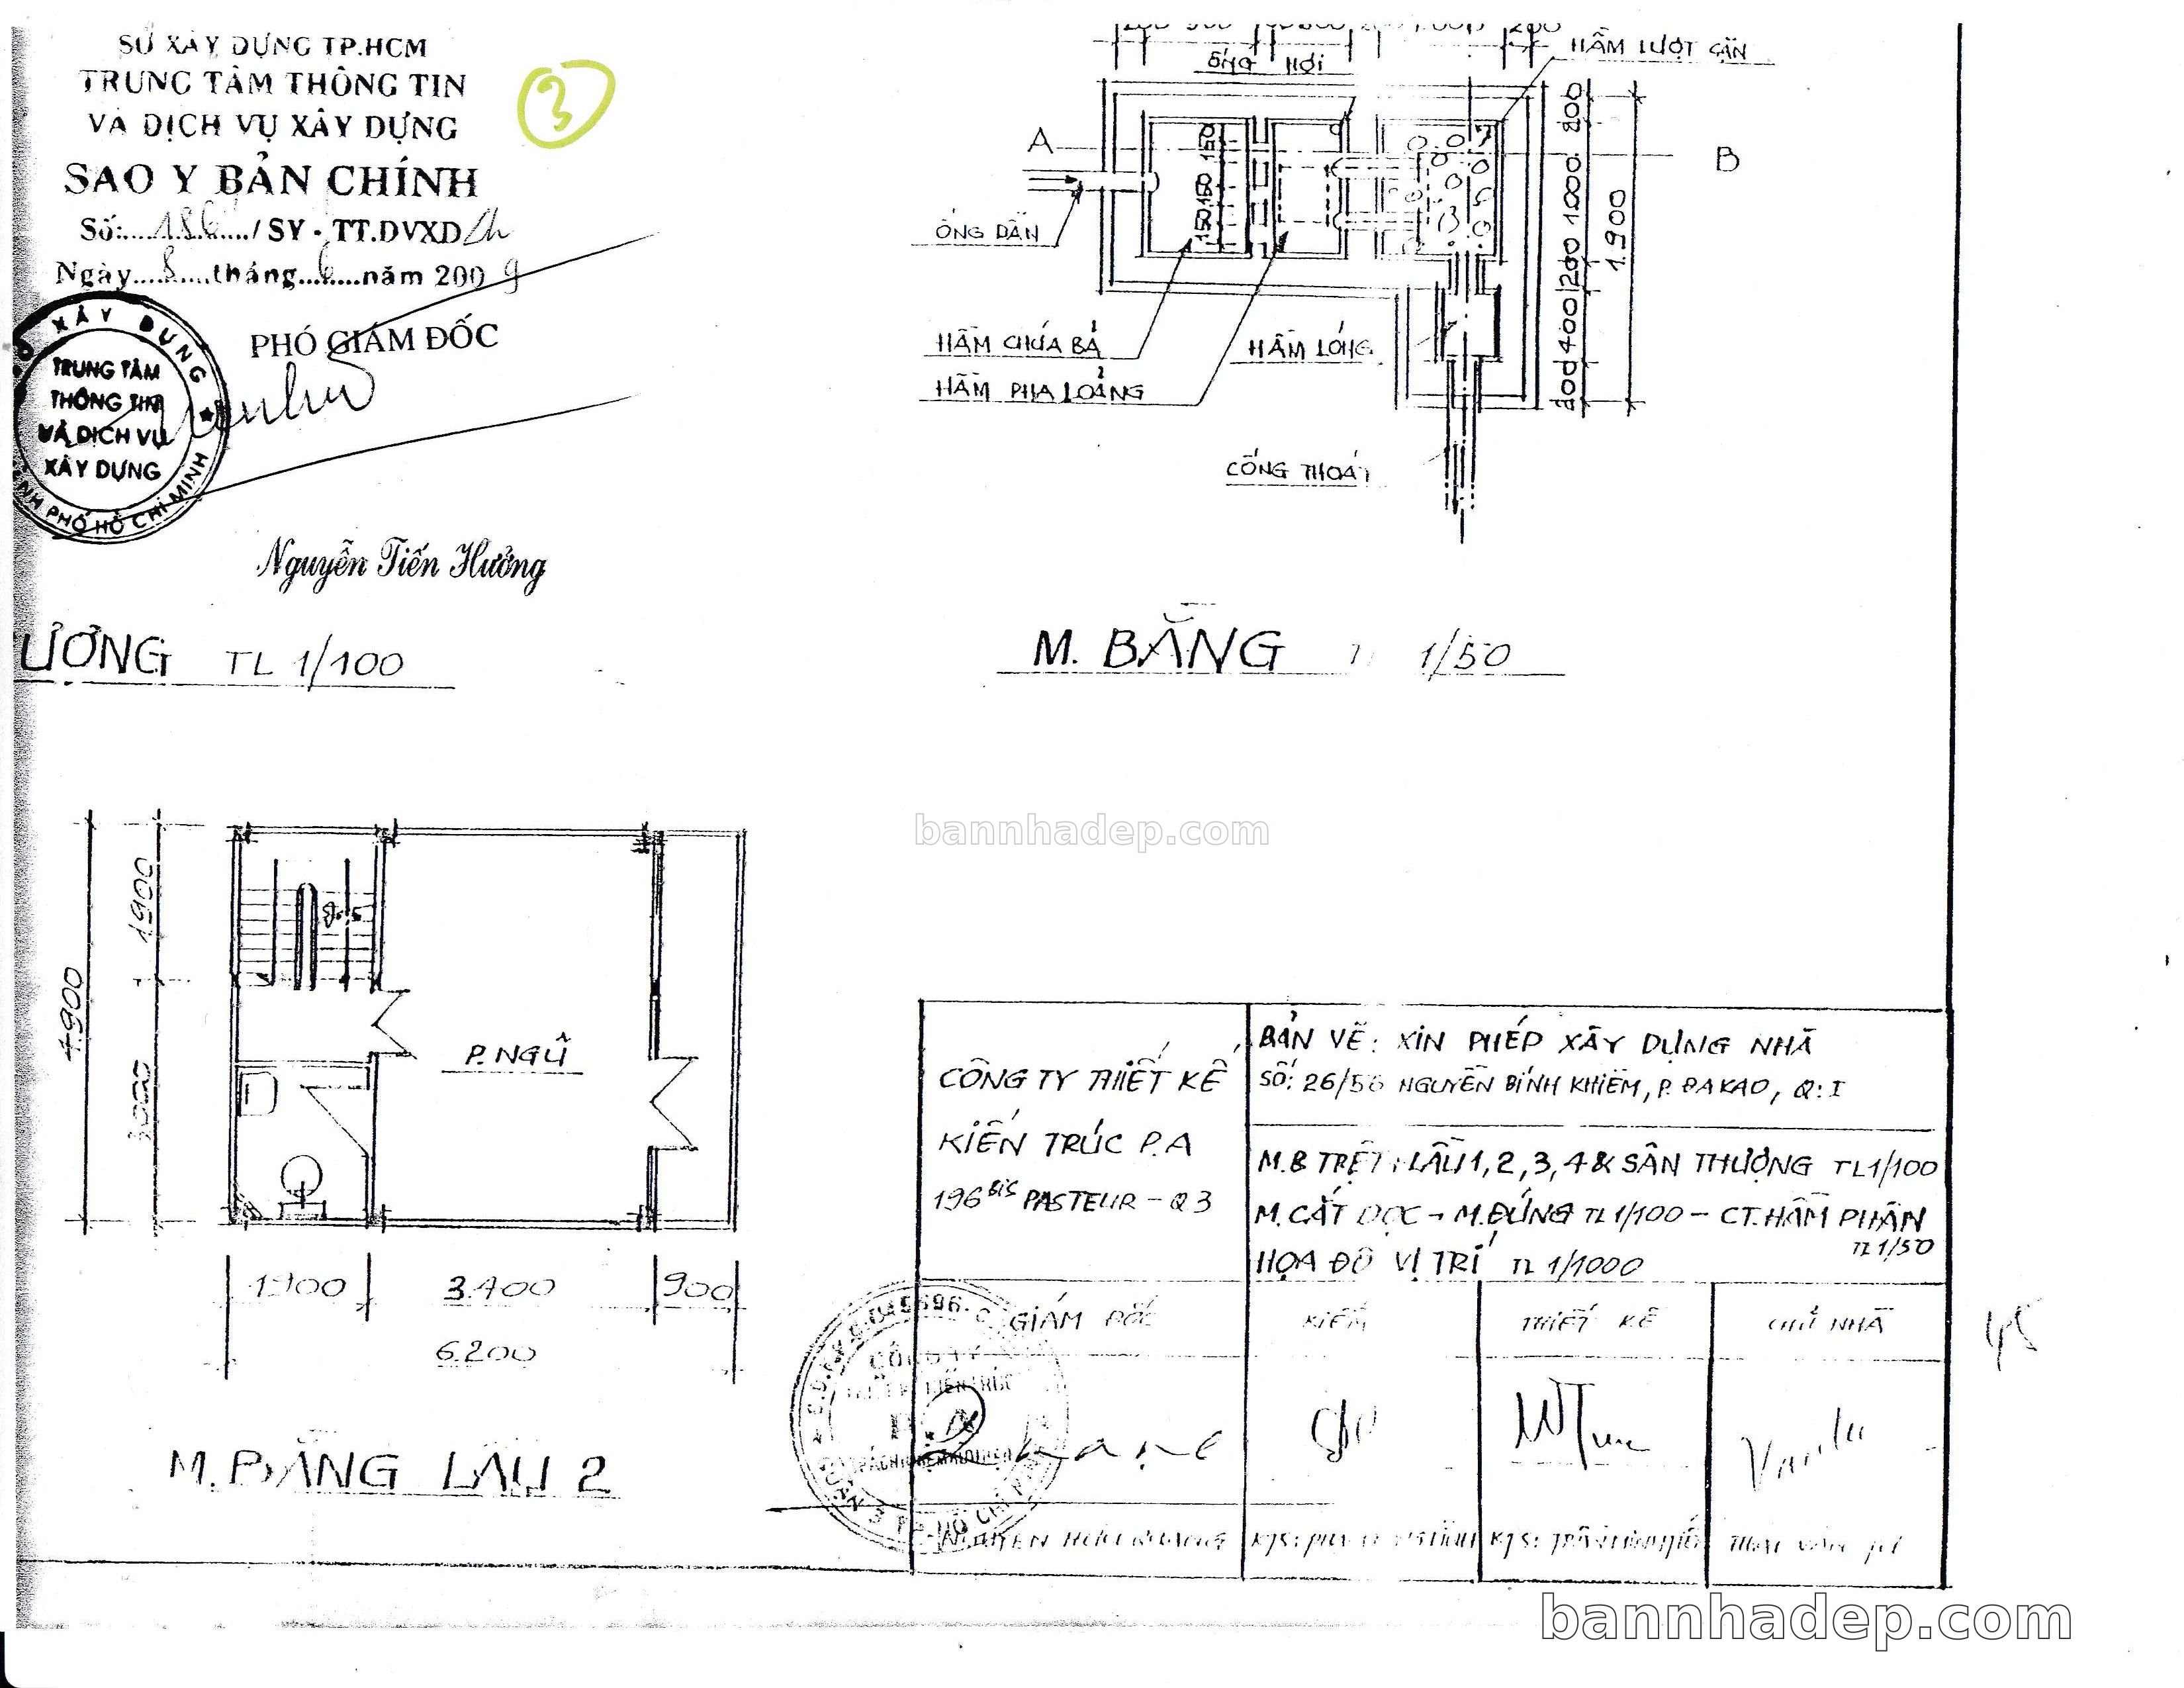 SỞ XÂY DỰNG TP.HCM
TRUNG TÂM THÔNG TIN
VÀ DỊCH VỤ XÂY DỰNG
SAO Y BẢN CHÍNH
Số:..../SY - TT.DVXD
Ngày...8...tháng...6...năm 2009
PHÓ GIÁM ĐỐC
XÂY DỰNG
TRUNG TÂM
THÔNG TIN
VÀ DỊCH VỤ
XÂY DỰNG
NH PHỐ HỒ CHÍ MINH
Nguyễn Tiến Hưởng
3
ƯỢNG TL 1/100
HẦM LƯỢT CẶN
ỐNG HƠI
A
B
ỐNG DẪN
150 150 150
HẦM CHỨA BẢ
HẦM LÓNG
HẦM PHA LOẢNG
CỐNG THOÁT
200
1.000
200
400
1.900
M. BẰNG 1/50
bannhadep.com
1900
4.900
3000
P.NGỦ
3.400
900
6.200
M.BẰNG LẦU 2
CÔNG TY THIẾT KẾ
KIẾN TRÚC P.A
196 BIS PASTEUR - Q3
BẢN VẼ: XIN PHÉP XÂY DỰNG NHÀ
SỐ: 26/56 NGUYỄN BỈNH KHIÊM, P. ĐAKAO, Q: I
M.B TRỆT, LẦU 1, 2, 3, 4 & SÂN THƯỢNG TL 1/100
M.CẮT DỌC - M.ĐỨNG TL 1/100 - CT. HẦM PHÂN
TL 1/50
HỌA ĐỒ VỊ TRÍ TL 1/1000
GIÁM ĐỐC
KIỂM
THIẾT KẾ
CHỦ NHÀ
bannhadep.com